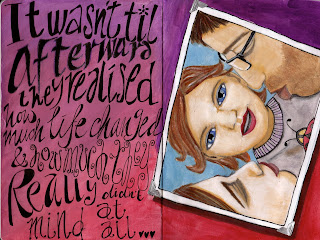 It wasn't til
Afterward
they realised
how
much life changed
& how much they
Really didnt
mind at all ♥♥♥